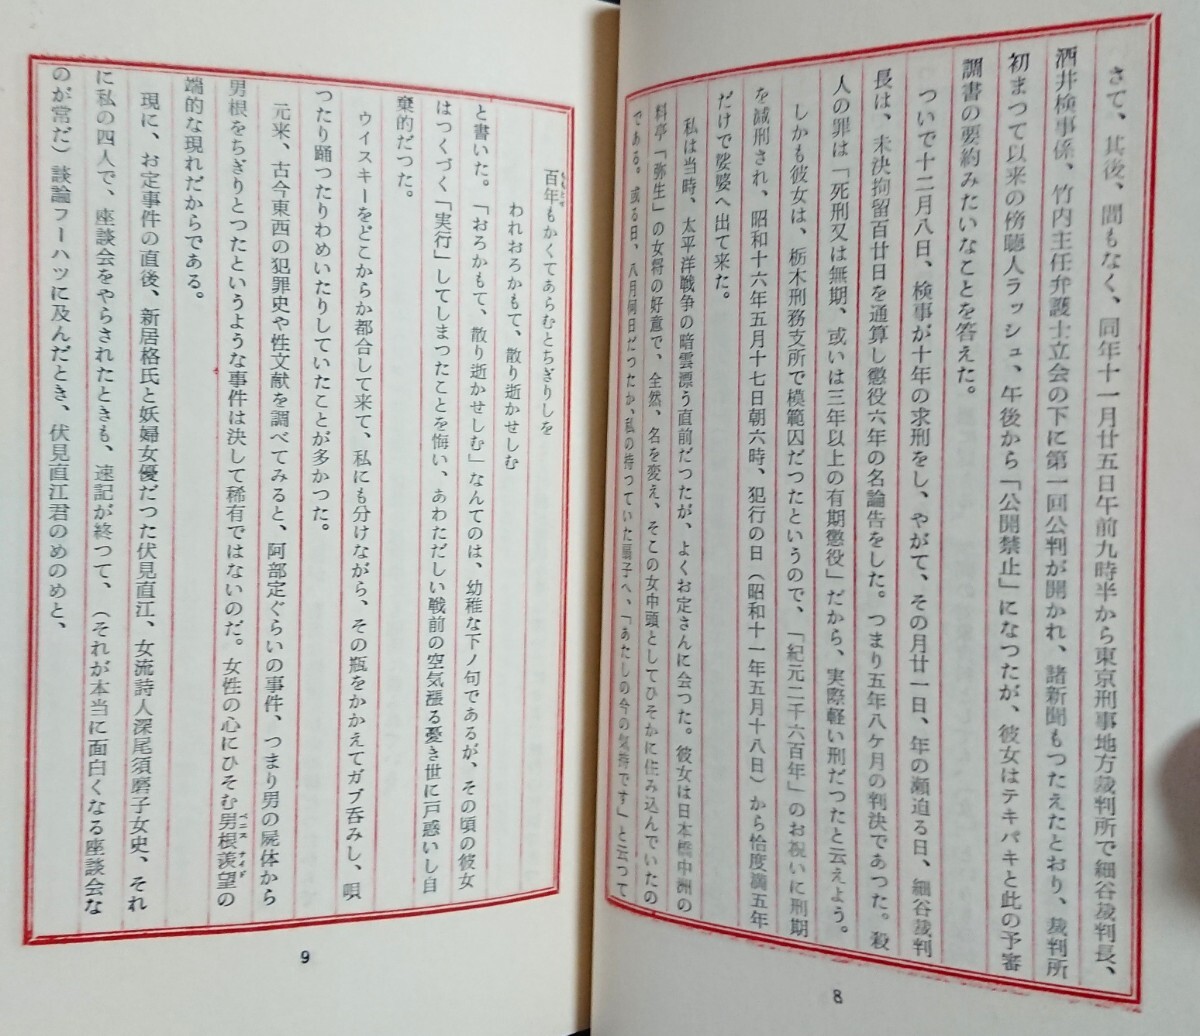 さて、其後、間もなく、同年十一月廿五日午前九時半から東京刑事地方裁判所で細谷裁判長、
酒井検事係、竹内主任弁護士立会の下に第一回公判が開かれ、諸新聞もつたえたとおり、裁判所
初まつて以来の傍聴人ラッシュ、午後から「公開禁止」になつたが、彼女はテキパキと此の予審
調書の要約みたいなことを答えた。
ついで十二月八日、検事が十年の求刑をし、やがて、その月廿一日、年の瀬迫る日、細谷裁判
長は、未決拘留百廿日を通算し懲役六年の名論告をした。つまり五年八ケ月の判決であつた。殺
人の罪は「死刑又は無期、或いは三年以上の有期懲役」だから、実際軽い刑だつたと云えよう。
しかも彼女は、栃木刑務支所で模範囚だつたというので、「紀元二千六百年」のお祝いに刑期
を減刑され、昭和十六年五月十七日朝六時、犯行の日（昭和十一年五月十八日）から恰度満五年
だけで娑婆へ出て来た。
私は当時、太平洋戦争の暗雲漂う直前だつたが、よくお定さんに会つた。彼女は日本橋中洲の
料亭「弥生」の女将の好意で、全然、名を変え、そこの女中頭としてひそかに住み込んでいたの
である。或る日、八月何日だつたか、私の持つていた扇子へ、「あたしの今の気持です」と云つて
8
百年もかくてあらむとちぎりしを
われおろかもて、散り逝かせしむ
と書いた。「おろかもて、散り逝かせしむ」なんてのは、幼稚な下ノ句であるが、その頃の彼女
はつくづく「実行」してしまつたことを悔い、あわただしい戦前の空気漲る憂き世に戸惑いし自
棄的だつた。
ウィスキーをどこからか都合して来て、私にも分けながら、その瓶をかかえてガブ呑みし、唄
つたり踊つたりわめいたりしていたことが多かつた。
元来、古今東西の犯罪史や性文献を調べてみると、阿部定ぐらいの事件、つまり男の屍体から
男根をちぎりとつたというような事件は決して稀有ではないのだ。女性の心にひそむ男根羨望の
ペニス ナイド
端的な現れだからである。
現に、お定事件の直後、新居格氏と妖婦女優だつた伏見直江、女流詩人深尾須磨子女史、それ
に私の四人で、座談会をやらされたときも、速記が終つて、（それが本当に面白くなる座談会な
のが常だ）談論フーハッに及んだとき、伏見直江君のめのめと、
9